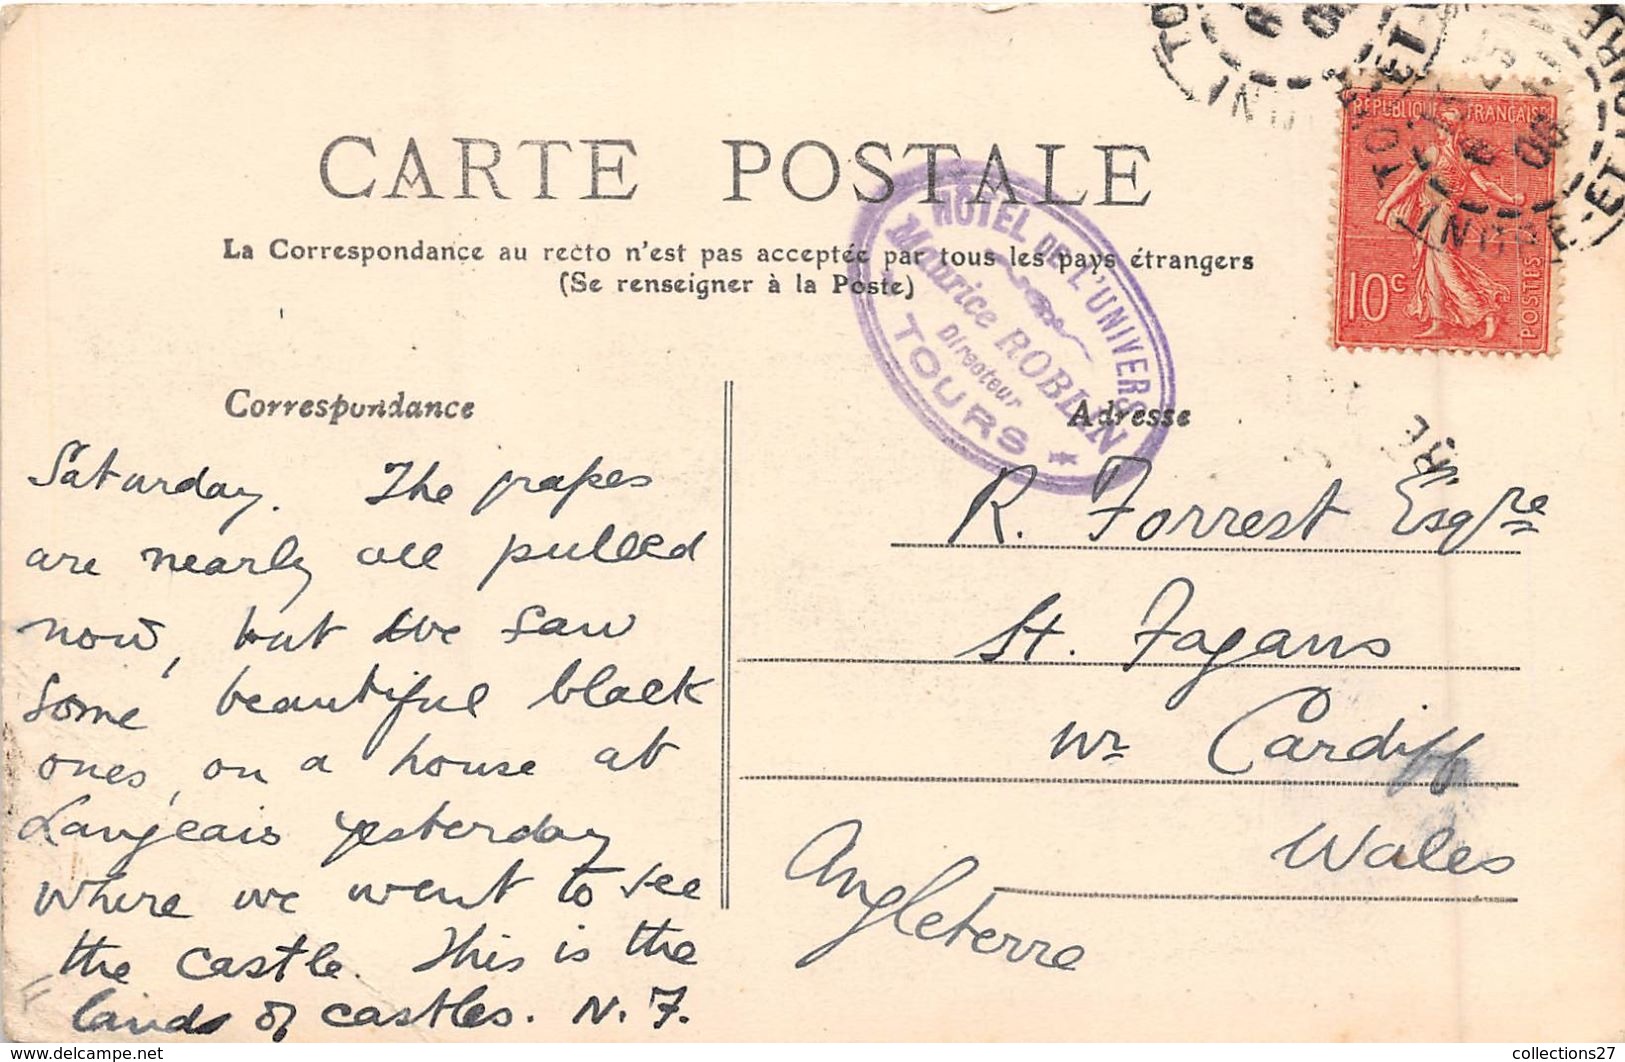 CARTE POSTALE
La Correspondance au recto n'est pas acceptée par tous les pays étrangers
(Se renseigner à la Poste)
HOTEL DE L'UNIVERS
Maurice ROBLIN
Directeur
TOURS
REPUBLIQUE FRANÇAISE
10c
POSTES
INDRE-ET-LOIRE
Correspondance
Saturday. The grapes
are nearly all pulled
now, but we saw
some beautiful black
ones, on a house at
Langeais yesterday
where we went to see
the castle. This is the
land of castles. N. F.
Adresse
R. Forrest Esqre
St. Fagans
Nr Cardiff
Wales
Angleterre
collections27
www.delcampe.net